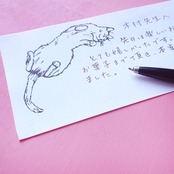 木村先生へ
先日は楽しいお
とても嬉しかったです。
お菓子まで頂き、本当
ました。